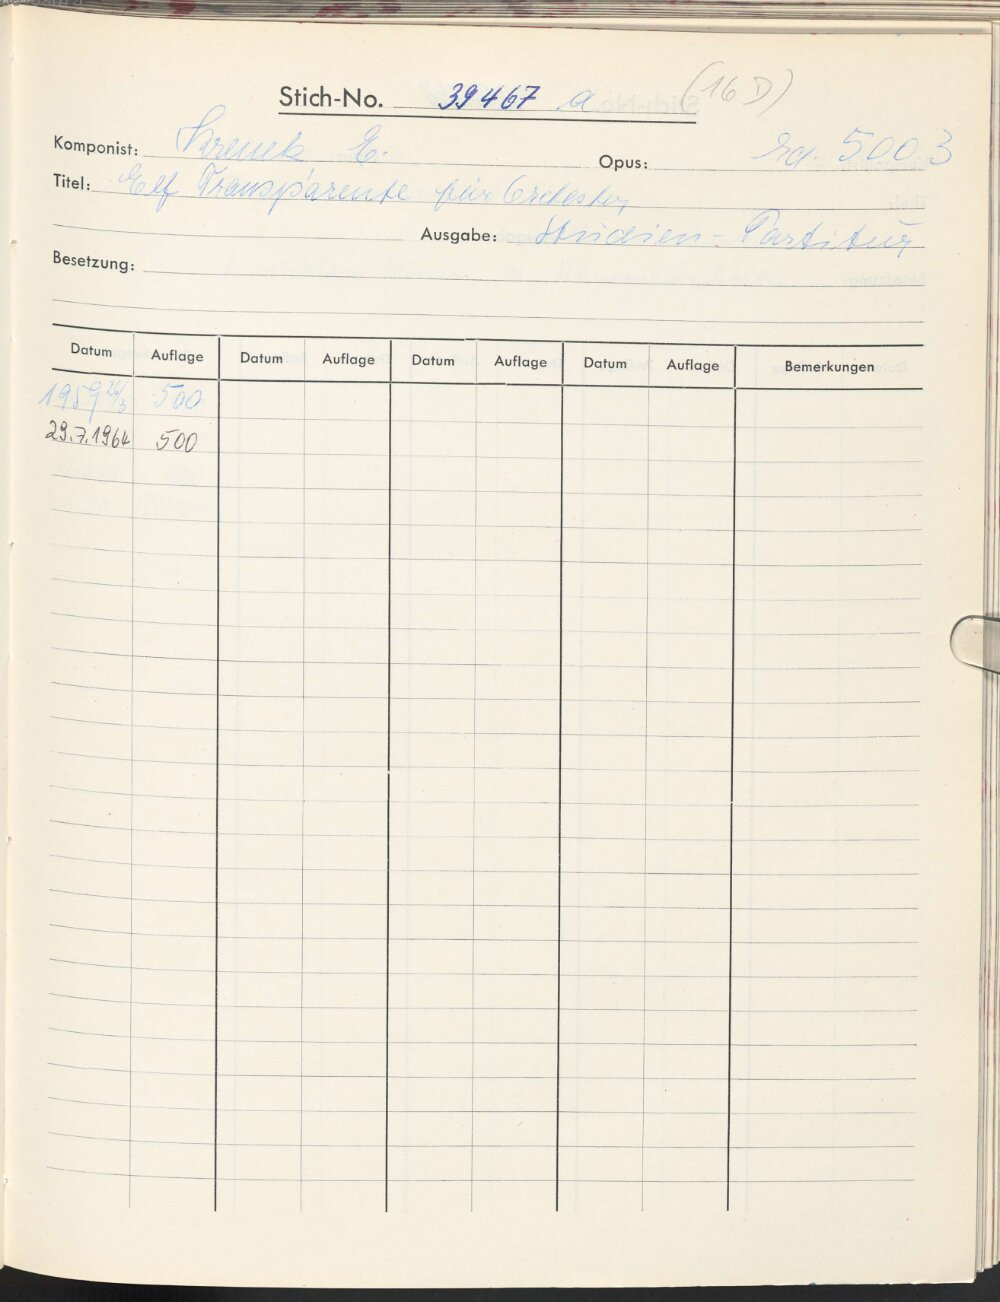 Stich-No. 39467 a (16 D)
Komponist: Krenek E. Opus: Ed. 5003
Titel: Elf Transparente für Orchester
Ausgabe: Studien-Partitur
Besetzung:
Datum Auflage Datum Auflage Datum Auflage Datum Auflage Bemerkungen
1959 500
29.7.1964 500